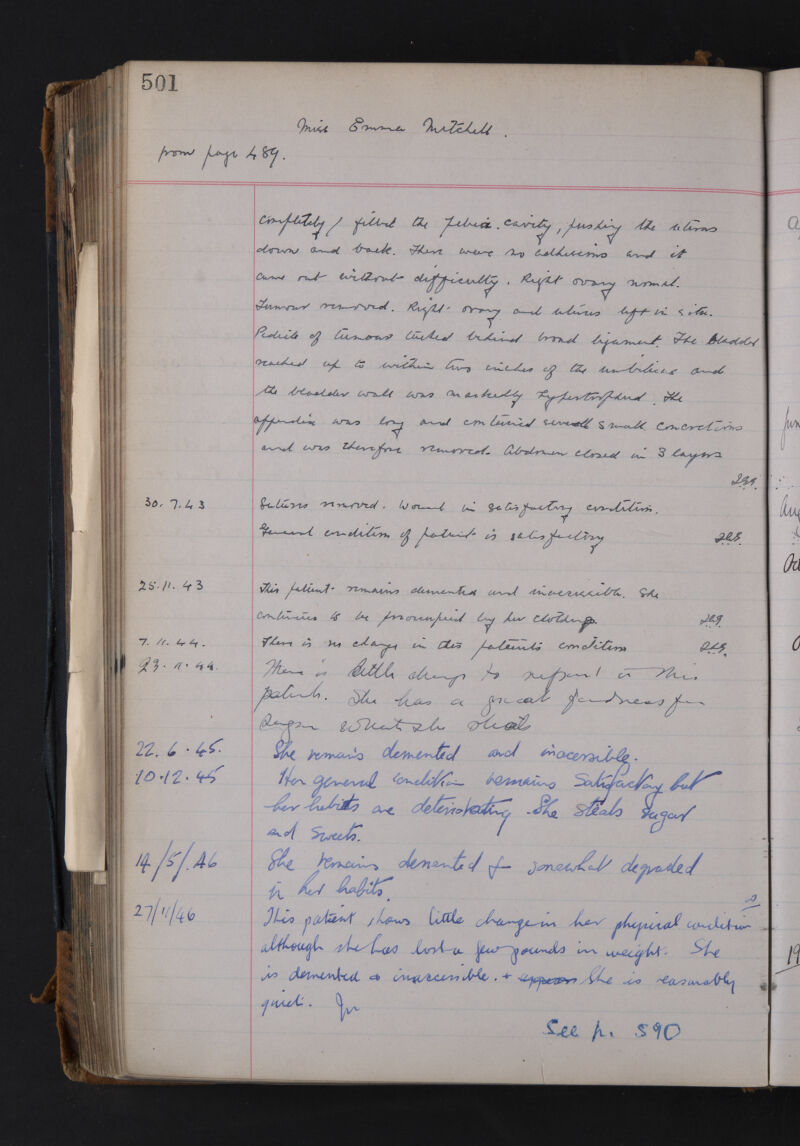 501
Miss Emma Mitchell.
from page 489.
completely / filled the pelvic cavity, pushing the uterus
down and back. There were no adhesions and it
came out without difficulty. Right ovary normal.
Tumour removed. Right ovary and uterus left in situ.
Pedicle of tumour tucked behind broad ligament. The bladder
reached up to within two inches of the umbilicus and
the bladder wall was markedly hypertrophied. The
appendix was long and contained several small concretions
and was therefore removed. Abdomen closed in 3 layers
30.7.43 Sutures removed. Wound in satisfactory condition.
General condition of patient is satisfactory
25.11.43 This patient remains demented and inaccessible. She
continues to be preoccupied by her clothing
7.11.44. There is no change in this patients condition
23.11.44. There is little change to report in this
patient. She has a great fondness for
sugar which she steals
22.6.45. She remains demented and inaccessible.
10.12.45 Her general condition remains satisfactory but
her habits are deteriorating. She steals sugar
and sweets.
14/5/.46 She remains demented & somewhat degraded
in her habits.
27/11/46 This patient shows little change in her physical condition
although she has lost a few pounds in weight. She
is demented & inaccessible. + appears She is reasonably
quiet.
See p. 590